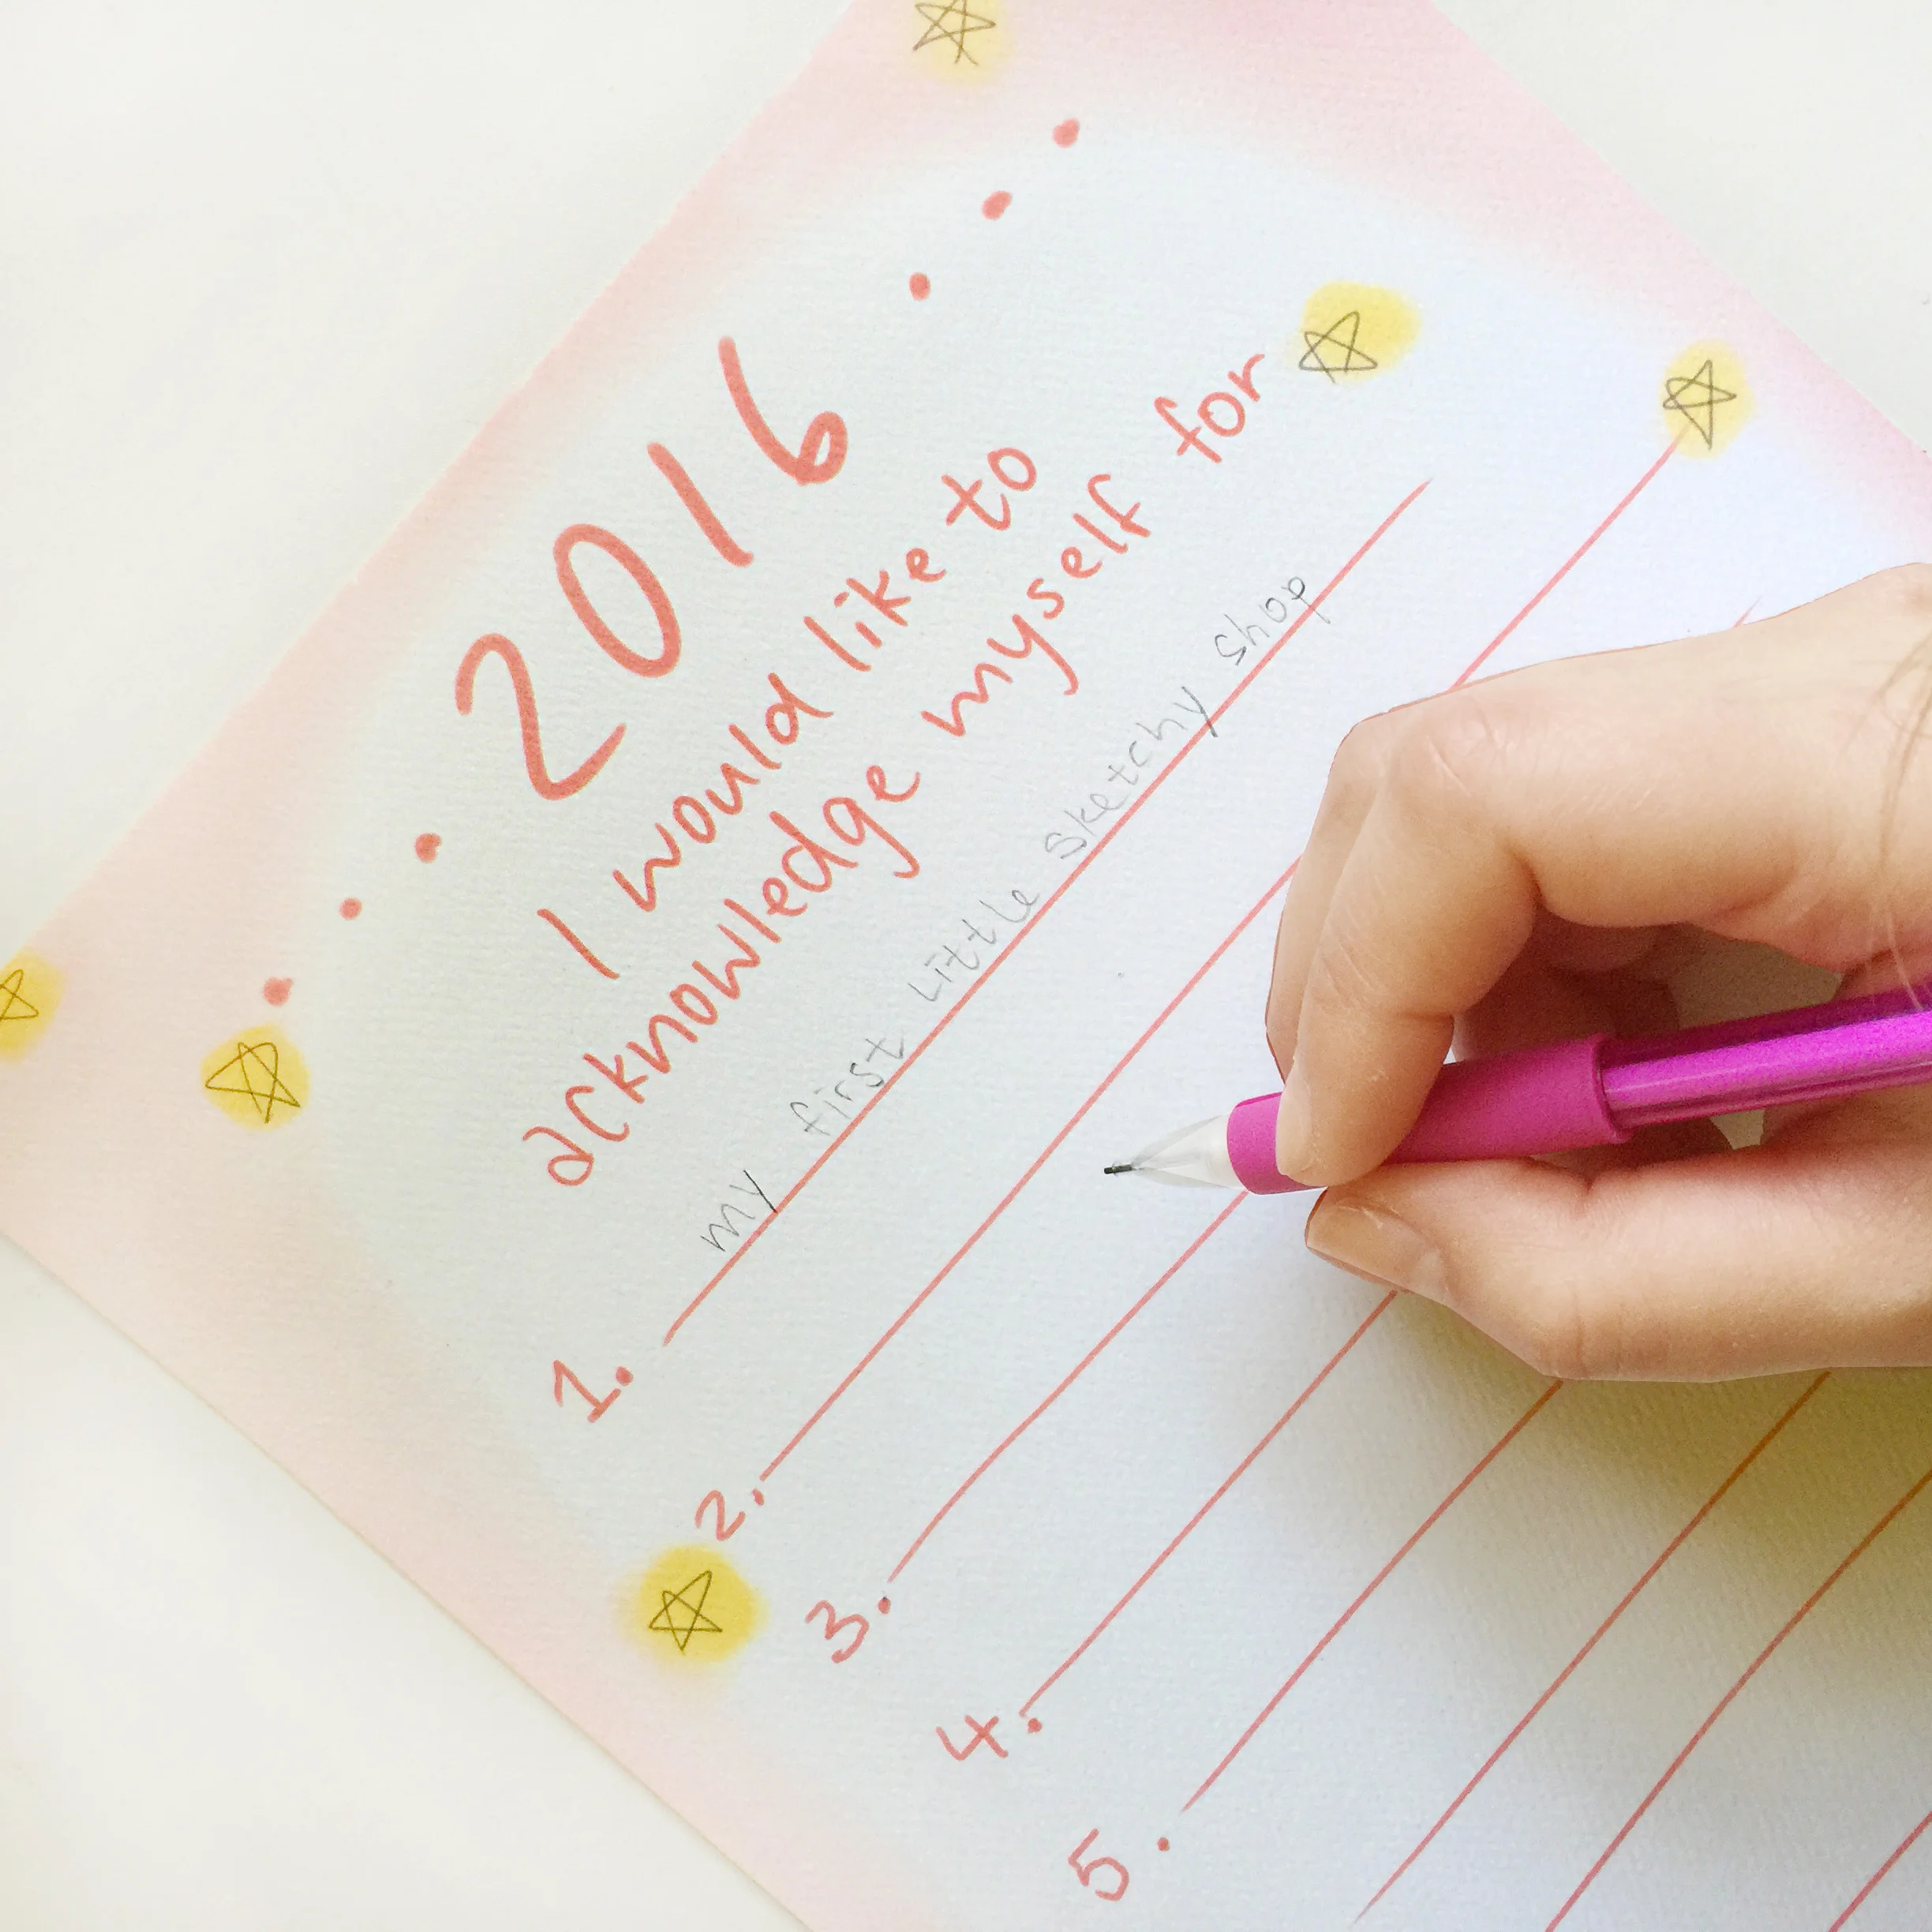 2016
I would like to
acknowledge myself for
1. my first Little Sketchy Shop
2.
3.
4.
5.